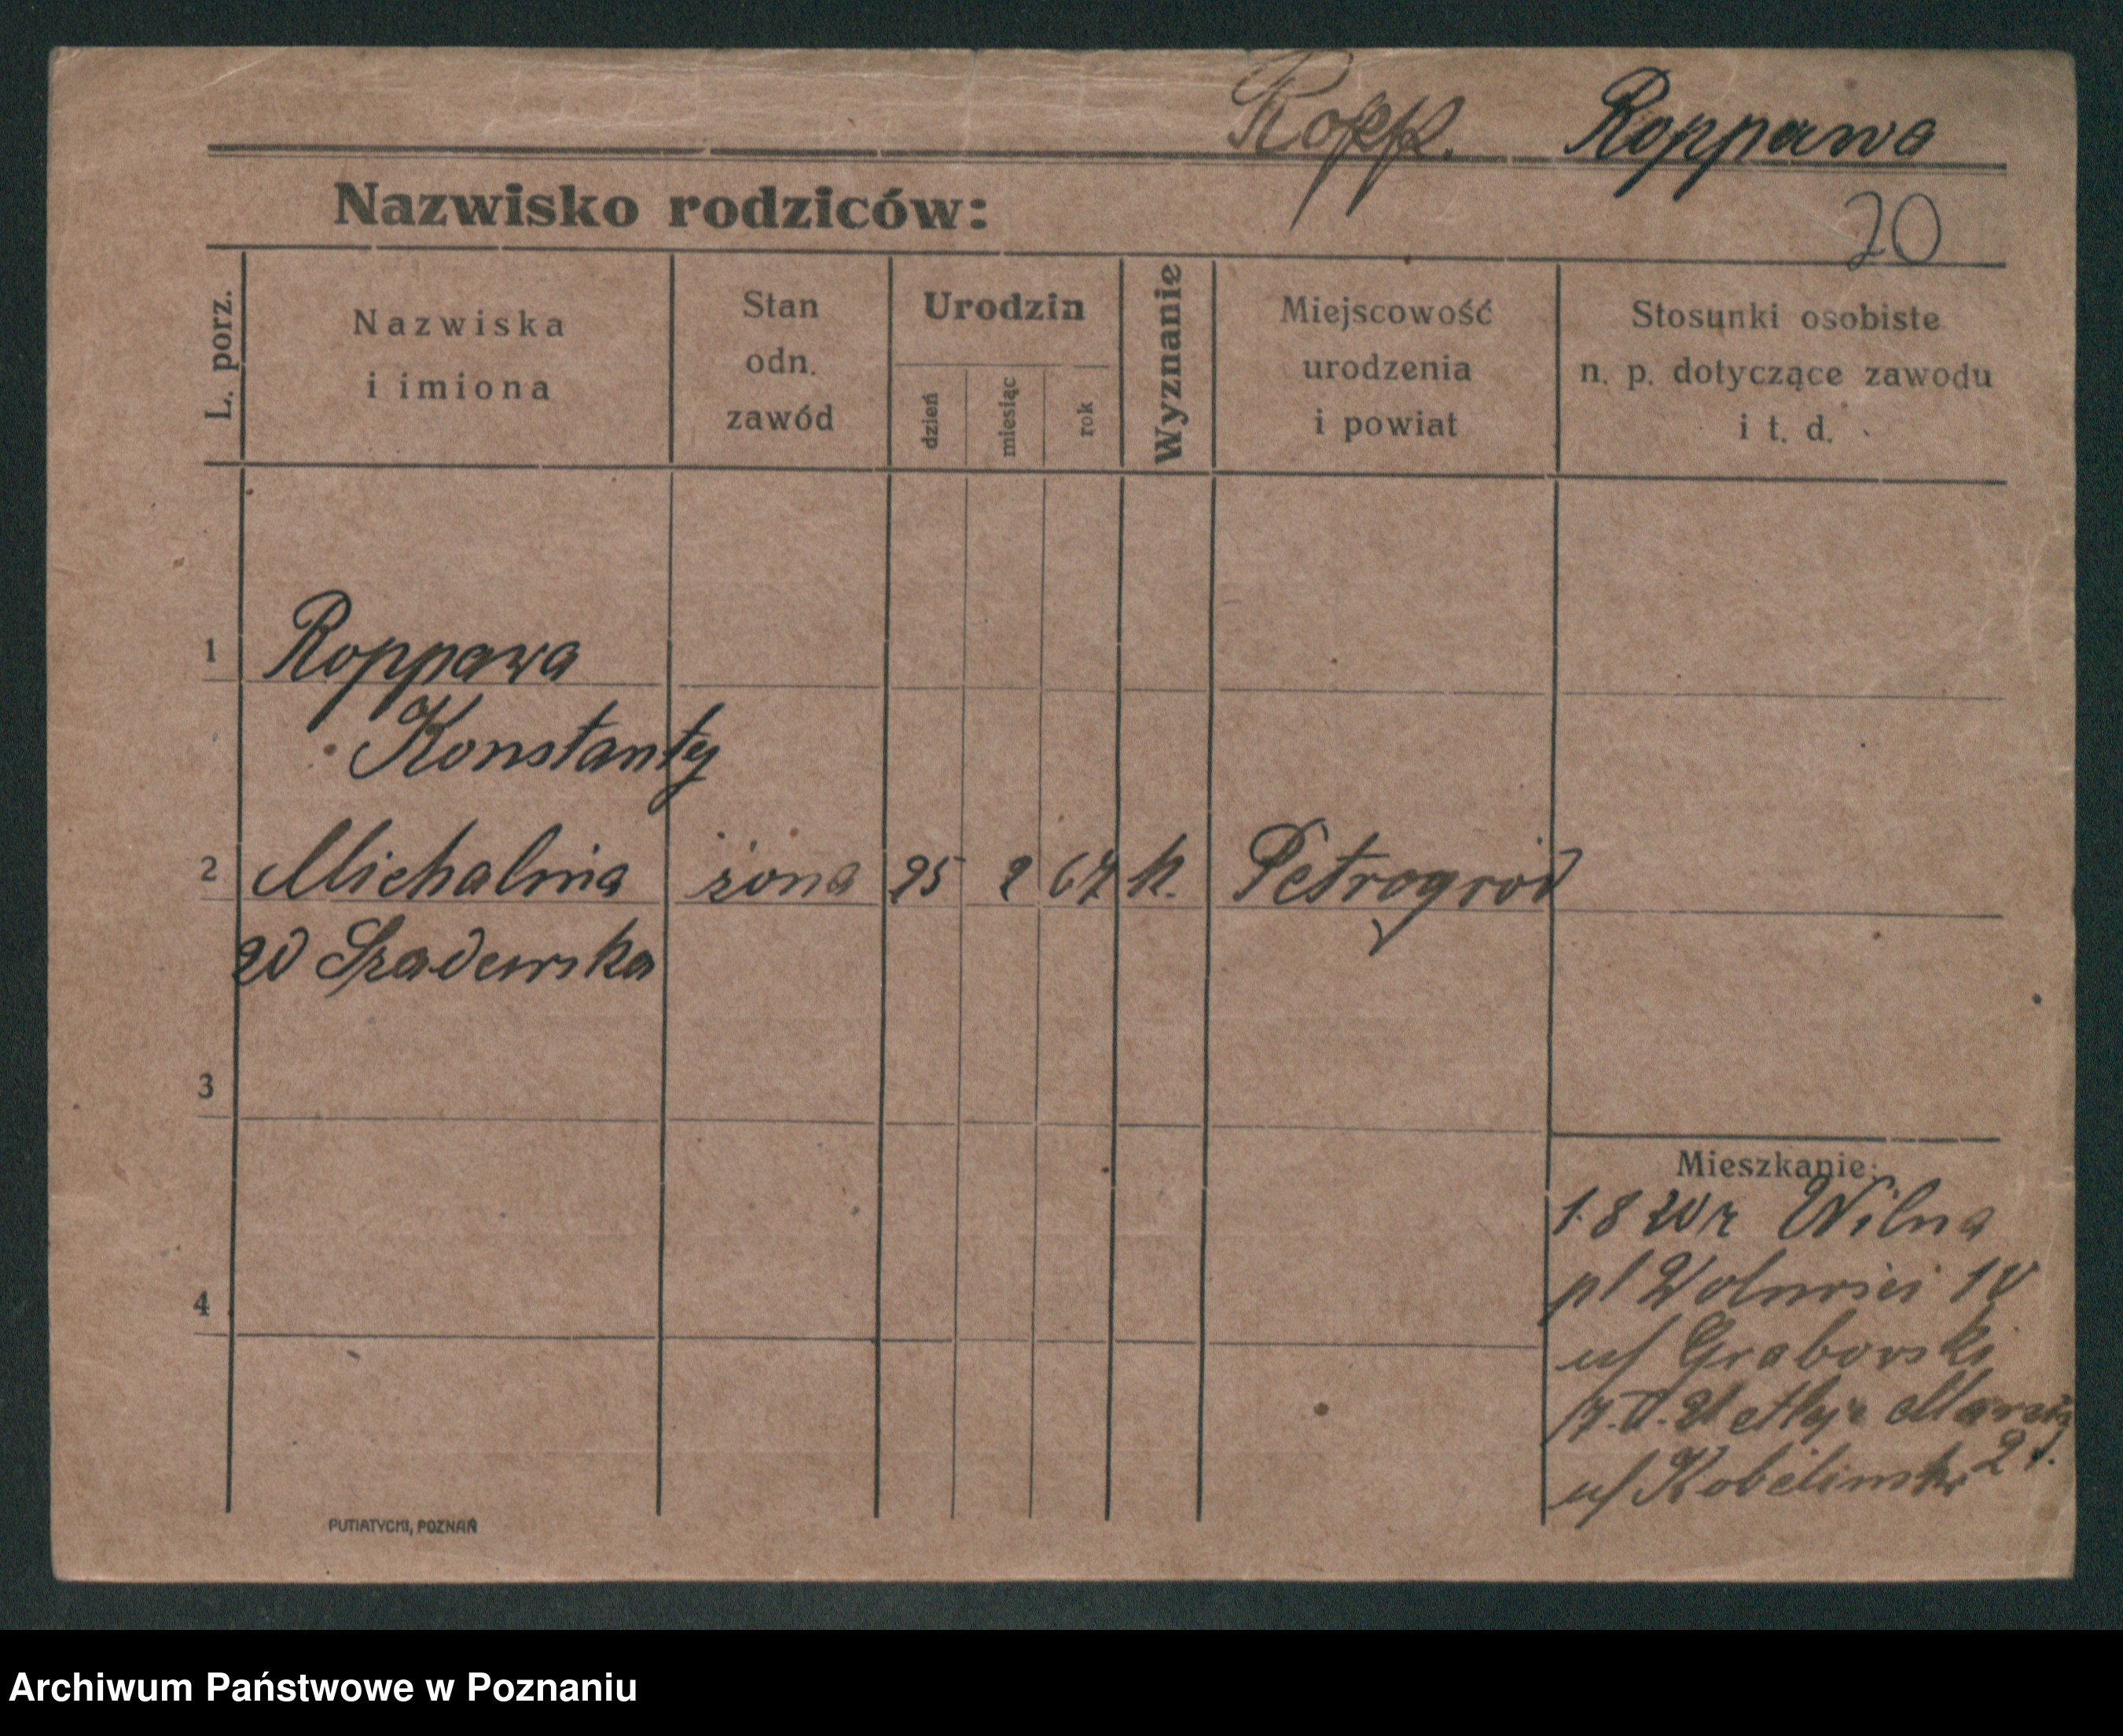 Ropp. Roppawa
Nazwisko rodziców:
20
L. porz.
Nazwiska
i imiona
Stan
odn.
zawód
Urodzin
dzień
miesiąc
rok
Wyznanie
Miejscowość
urodzenia
i powiat
Stosunki osobiste
n. p. dotyczące zawodu
i t. d.
1 Roppawa
Konstanty
2 Michalina żona 25 2 67 k. Petrogród
Szadewska
3
4
Mieszkanie:
1.8 20 r Wilna
pl Wolności 10
u/ Grabowski
u/ Kobelinski
PUTIATYCKI, POZNAŃ
Archiwum Państwowe w Poznaniu